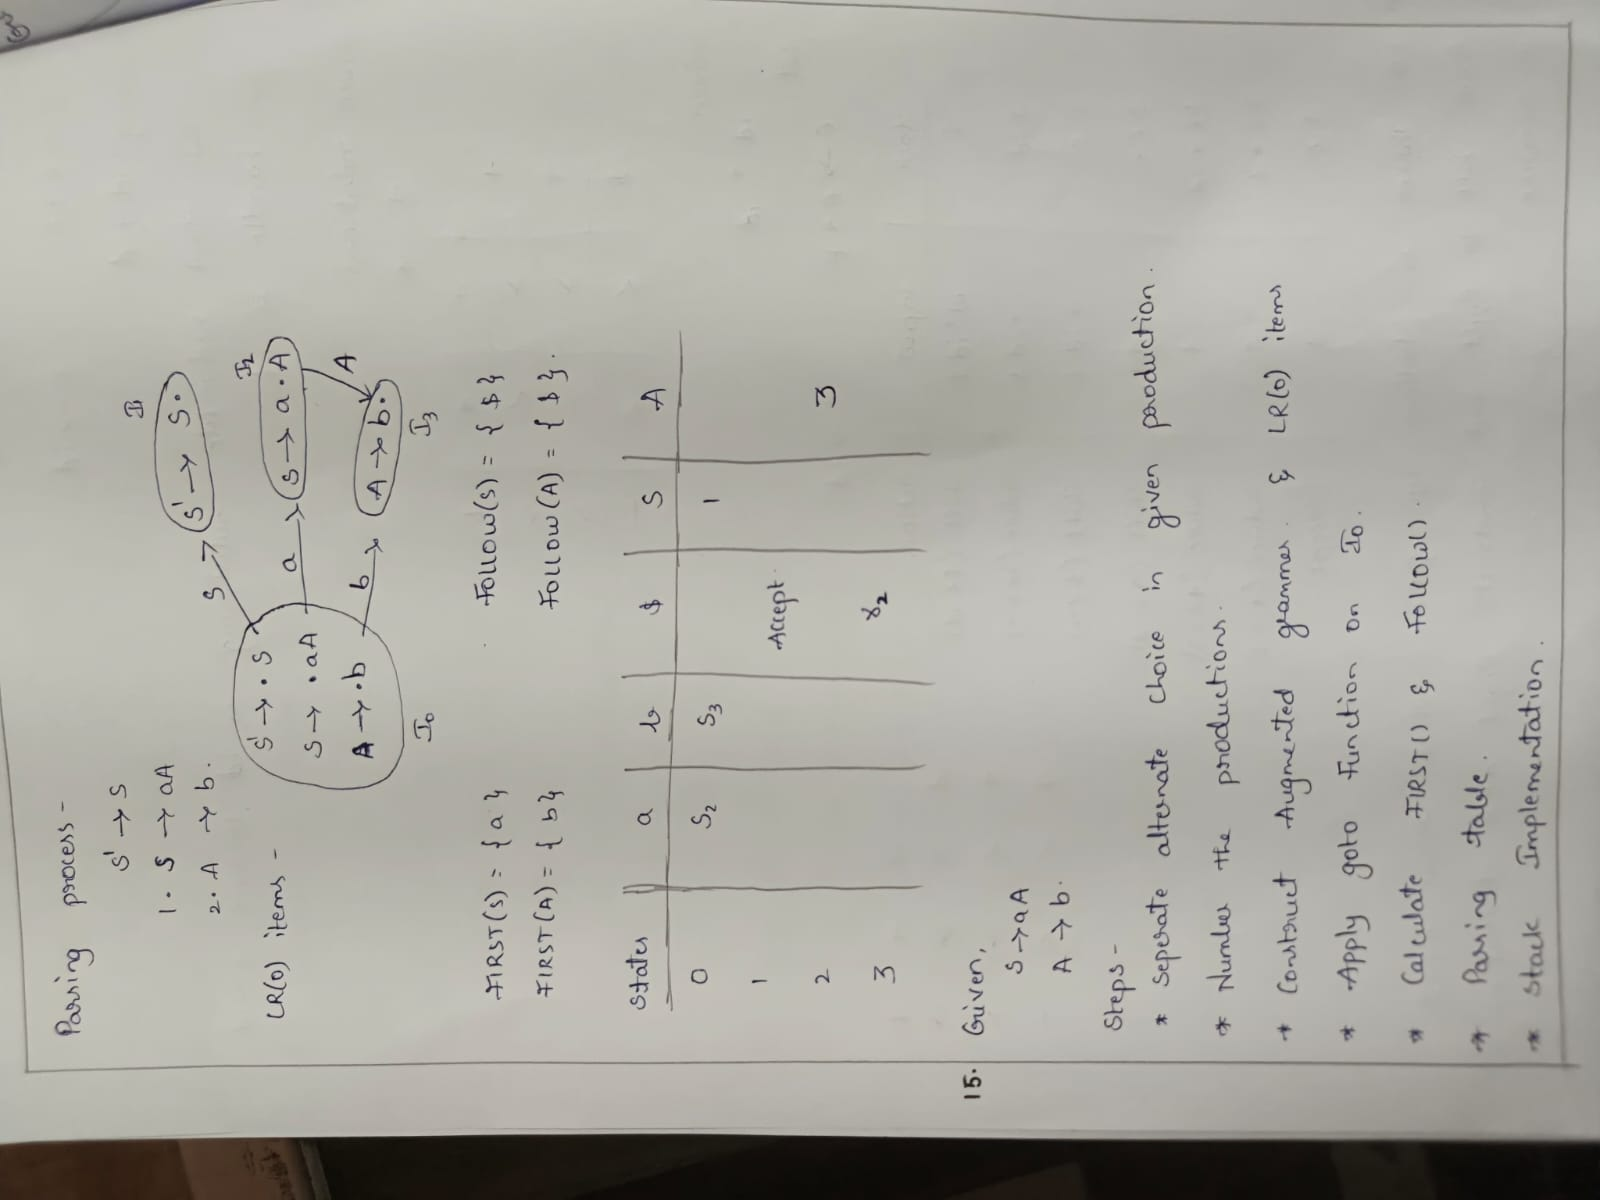 Parsing process -
S' → S
1. S → aA
2. A → b.
LR(0) items -
S' → .S
S → .aA
A → .b
I0
S
S' → S.
I1
a
S → a.A
I2
A
b
A → b.
I3
FIRST(S) = { a } FOLLOW(S) = { $ }
FIRST(A) = { b } FOLLOW(A) = { $ }.
States a b $ S A
0 S2 S3 1
1 Accept
2 3
3 r2
15. Given,
S → aA
A → b.
Steps -
* Seperate alternate choice in given production.
* Number the productions.
* Construct Augmented grammer. & LR(0) items
* Apply goto Function on I0.
* Calculate FIRST() & FOLLOW().
* Parsing table.
* Stack Implementation.